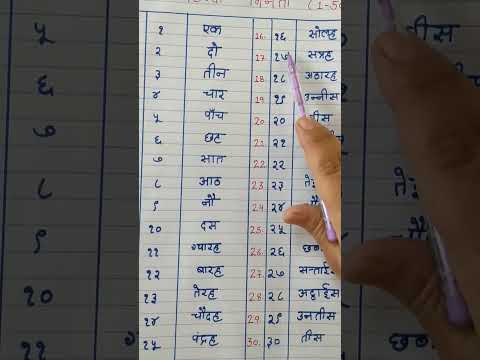 गिनती (1-50
१ एक 16. १६ सोलह
२ दो 17. १७ सत्रह
३ तीन 18. १८ अठारह
४ चार 19. १९ उन्नीस
५ पाँच 20. २०
६ छह 21. २१
७ सात 22. २२
८ आठ 23. २३
९ नौ 24. २४
१० दस 25. २५
११ ग्यारह 26. २६
१२ बारह 27. २७ सत्ताईस
१३ तेरह 28. २८ अट्ठाईस
१४ चौदह 29. २९ उनतीस
१५ पंद्रह 30. ३० तीस